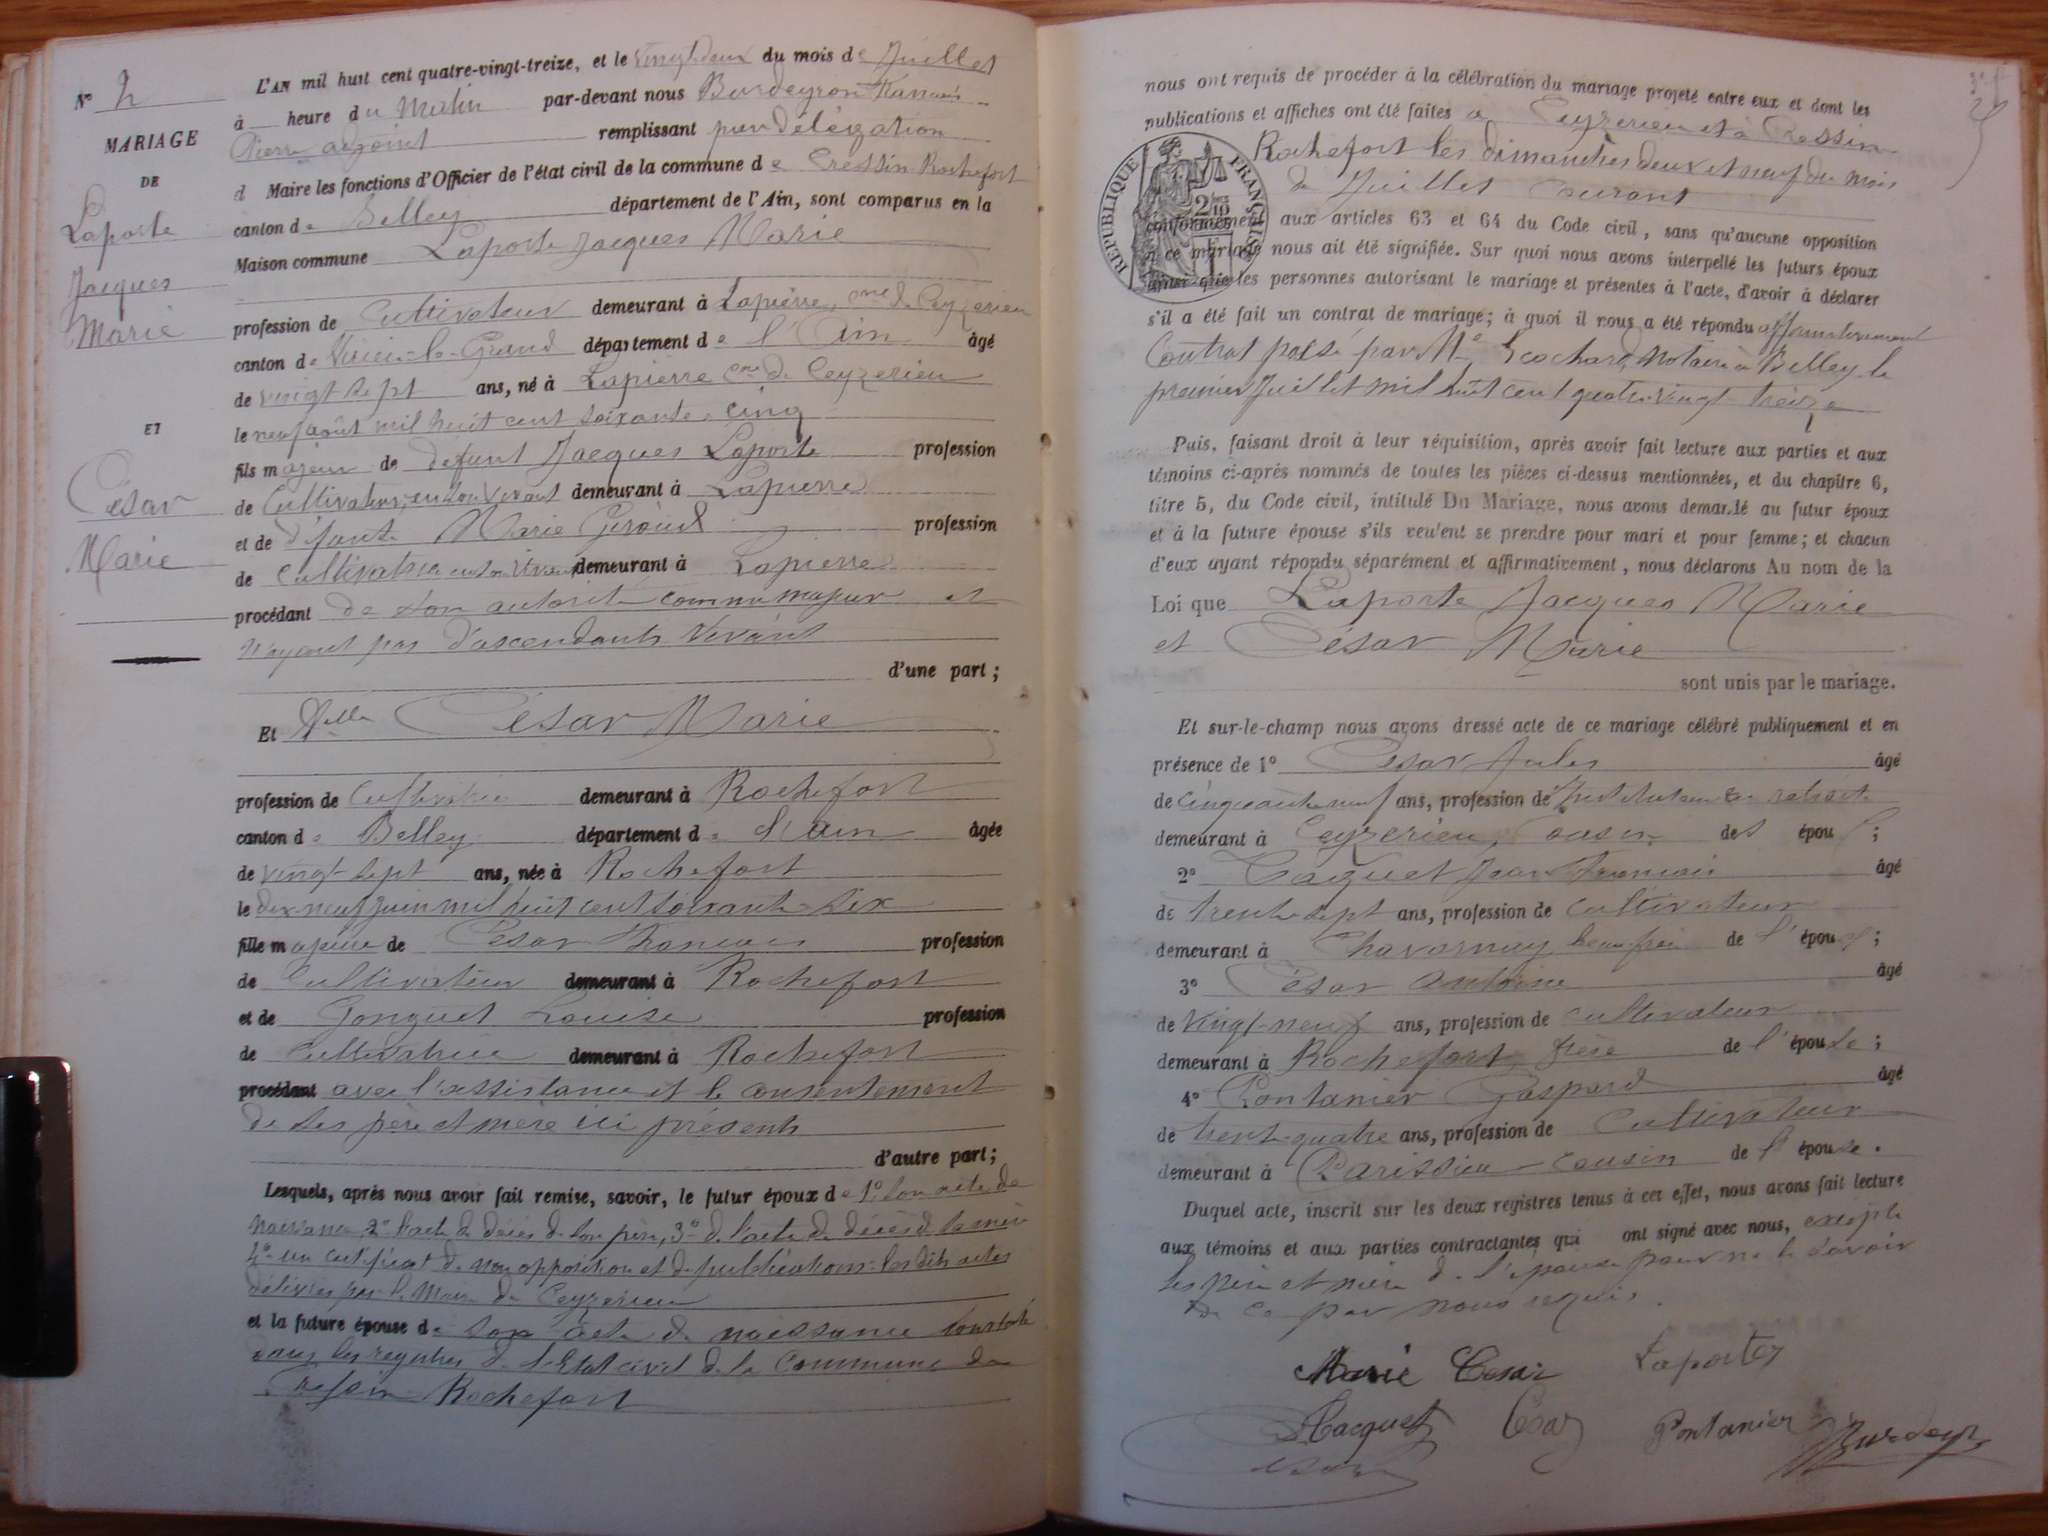 N° 2
MARIAGE
DE
Laporte
Jacques
Marie
ET
César
Marie
L'AN mil huit cent quatre-vingt-treize, et le vingt deux du mois de Juillet
à heure du Matin par-devant nous Burdeyron François
Pierre adjoint remplissant par délégation
d Maire les fonctions d'Officier de l'état civil de la commune de Cressin Rochefort
canton de Belley département de l'Ain, sont comparus en la
Maison commune Laporte Jacques Marie
profession de Cultivateur demeurant à Lapierre, cne de Ceyzerieu
canton de Virieu-le-Grand département de l'Ain âgé
de vingt sept ans, né à Lapierre cne de Ceyzerieu
le neuf août mil huit cent soixante-cinq
fils majeur de défunt Jacques Laporte profession
de Cultivateur, en son vivant demeurant à Lapierre
et de défunte Marie profession
de Cultivatrice en son vivant demeurant à Lapierre
procédant de son autorité comme majeur et
n'ayant pas d'ascendants vivant
d'une part ;
Et Delle César Marie
profession de Cultivatrice demeurant à Rochefort
canton de Belley département de l'Ain âgée
de vingt sept ans, née à Rochefort
le dix-neuf juin mil huit cent soixante-six
fille majeure de César François profession
de Cultivateur demeurant à Rochefort
et de Gonguet Louise profession
de Cultivatrice demeurant à Rochefort
procédant avec l'assistance et le consentement
de ses père et mère ici présents
d'autre part ;
Lesquels, après nous avoir fait remise, savoir, le futur époux de 1° son acte de
naissance 2° l'acte de décès de son père, 3° de l'acte de décès de sa mère
4° un certificat de non opposition et de publications les dits actes
délivrés par le Maire de Ceyzerieu
et la future épouse de son acte de naissance constaté
dans les registres de l'Etat civil de la Commune de
Cressin-Rochefort
nous ont requis de procéder à la célébration du mariage projeté entre eux et dont les
publications et affiches ont été faites à Ceyzerieu et à Cressin
Rochefort les dimanches deux et neuf du mois
de Juillet courant
RÉPUBLIQUE FRANÇAISE
conformément aux articles 63 et 64 du Code civil, sans qu'aucune opposition
à ce mariage nous ait été signifiée. Sur quoi nous avons interpellé les futurs époux
ainsi que les personnes autorisant le mariage et présentes à l'acte, d'avoir à déclarer
s'il a été fait un contrat de mariage ; à quoi il nous a été répondu affirmativement
Contrat passé par Me Notaire à Belley le
premier Juillet mil huit cent quatre vingt treize
Puis, faisant droit à leur réquisition, après avoir fait lecture aux parties et aux
témoins ci-après nommés de toutes les pièces ci-dessus mentionnées, et du chapitre 6,
titre 5, du Code civil, intitulé Du Mariage, nous avons demandé au futur époux
et à la future épouse s'ils veulent se prendre pour mari et pour femme ; et chacun
d'eux ayant répondu séparément et affirmativement, nous déclarons Au nom de la
Loi que Laporte Jacques Marie
et César Marie
sont unis par le mariage.
Et sur-le-champ nous avons dressé acte de ce mariage célébré publiquement et en
présence de 1° César Jules âgé
de cinquante neuf ans, profession de Instituteur en retraite
demeurant à Ceyzerieu, Cousin des épou ;
2° Jean François âgé
de trente-sept ans, profession de cultivateur
demeurant à Chavornay beau frère de l'épou ;
3° César Antoine âgé
de vingt-neuf ans, profession de cultivateur
demeurant à Rochefort, frère de l'épouse ;
4° Pontanier Gaspard âgé
de trente-quatre ans, profession de Cultivateur
demeurant à Parissieu - cousin de l'épouse.
Duquel acte, inscrit sur les deux registres tenus à cet effet, nous avons fait lecture
aux témoins et aux parties contractantes qui ont signé avec nous, excepté
les père et mère de l'épouse pour ne le savoir
de ce par nous requis.
Marie César Laporte
César Pontanier Burdeyron
César